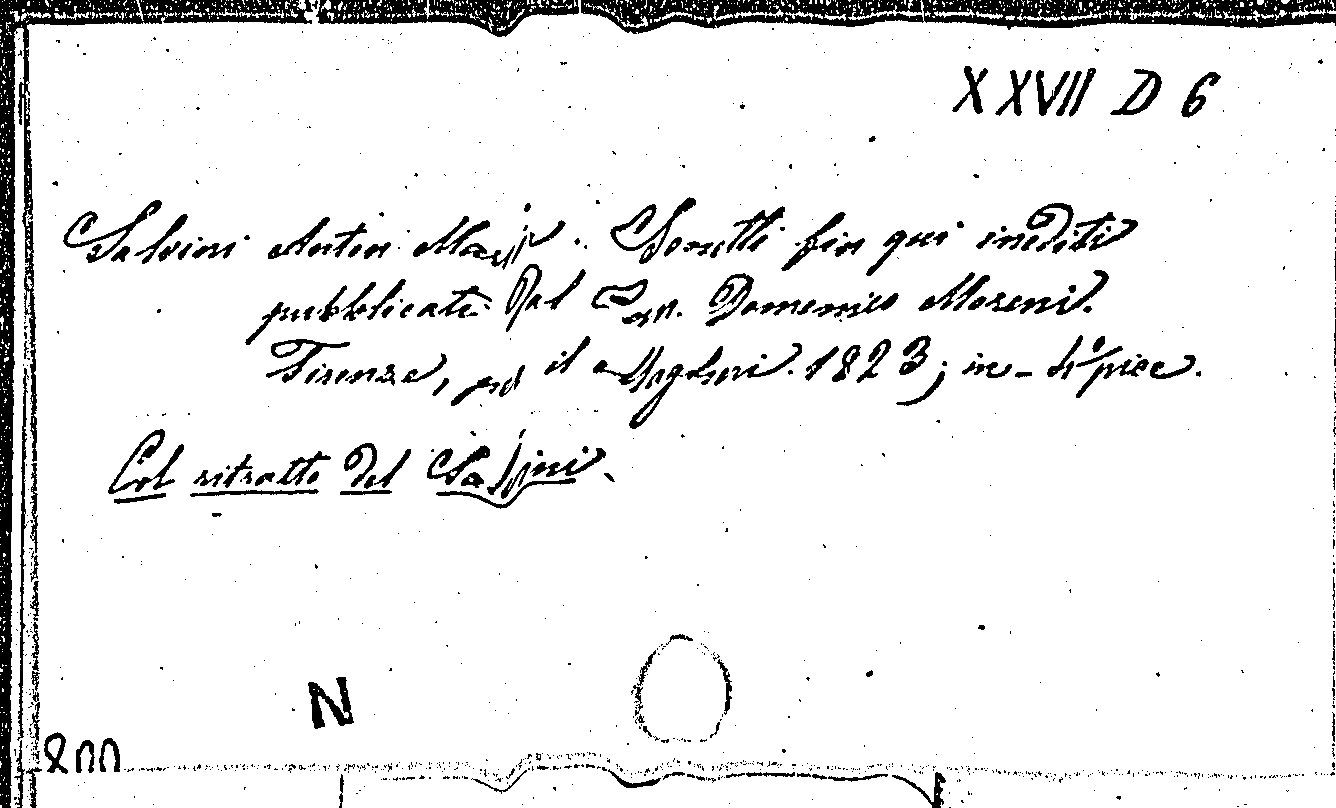 XXVII D 6
Salvini Anton Maria. Sonetti fin qui inediti
pubblicati dal Can. Domenico Moreni.
Firenze, pel il Magheri. 1823; in-4º picc.
Col ritratto del Salvini.
N
800